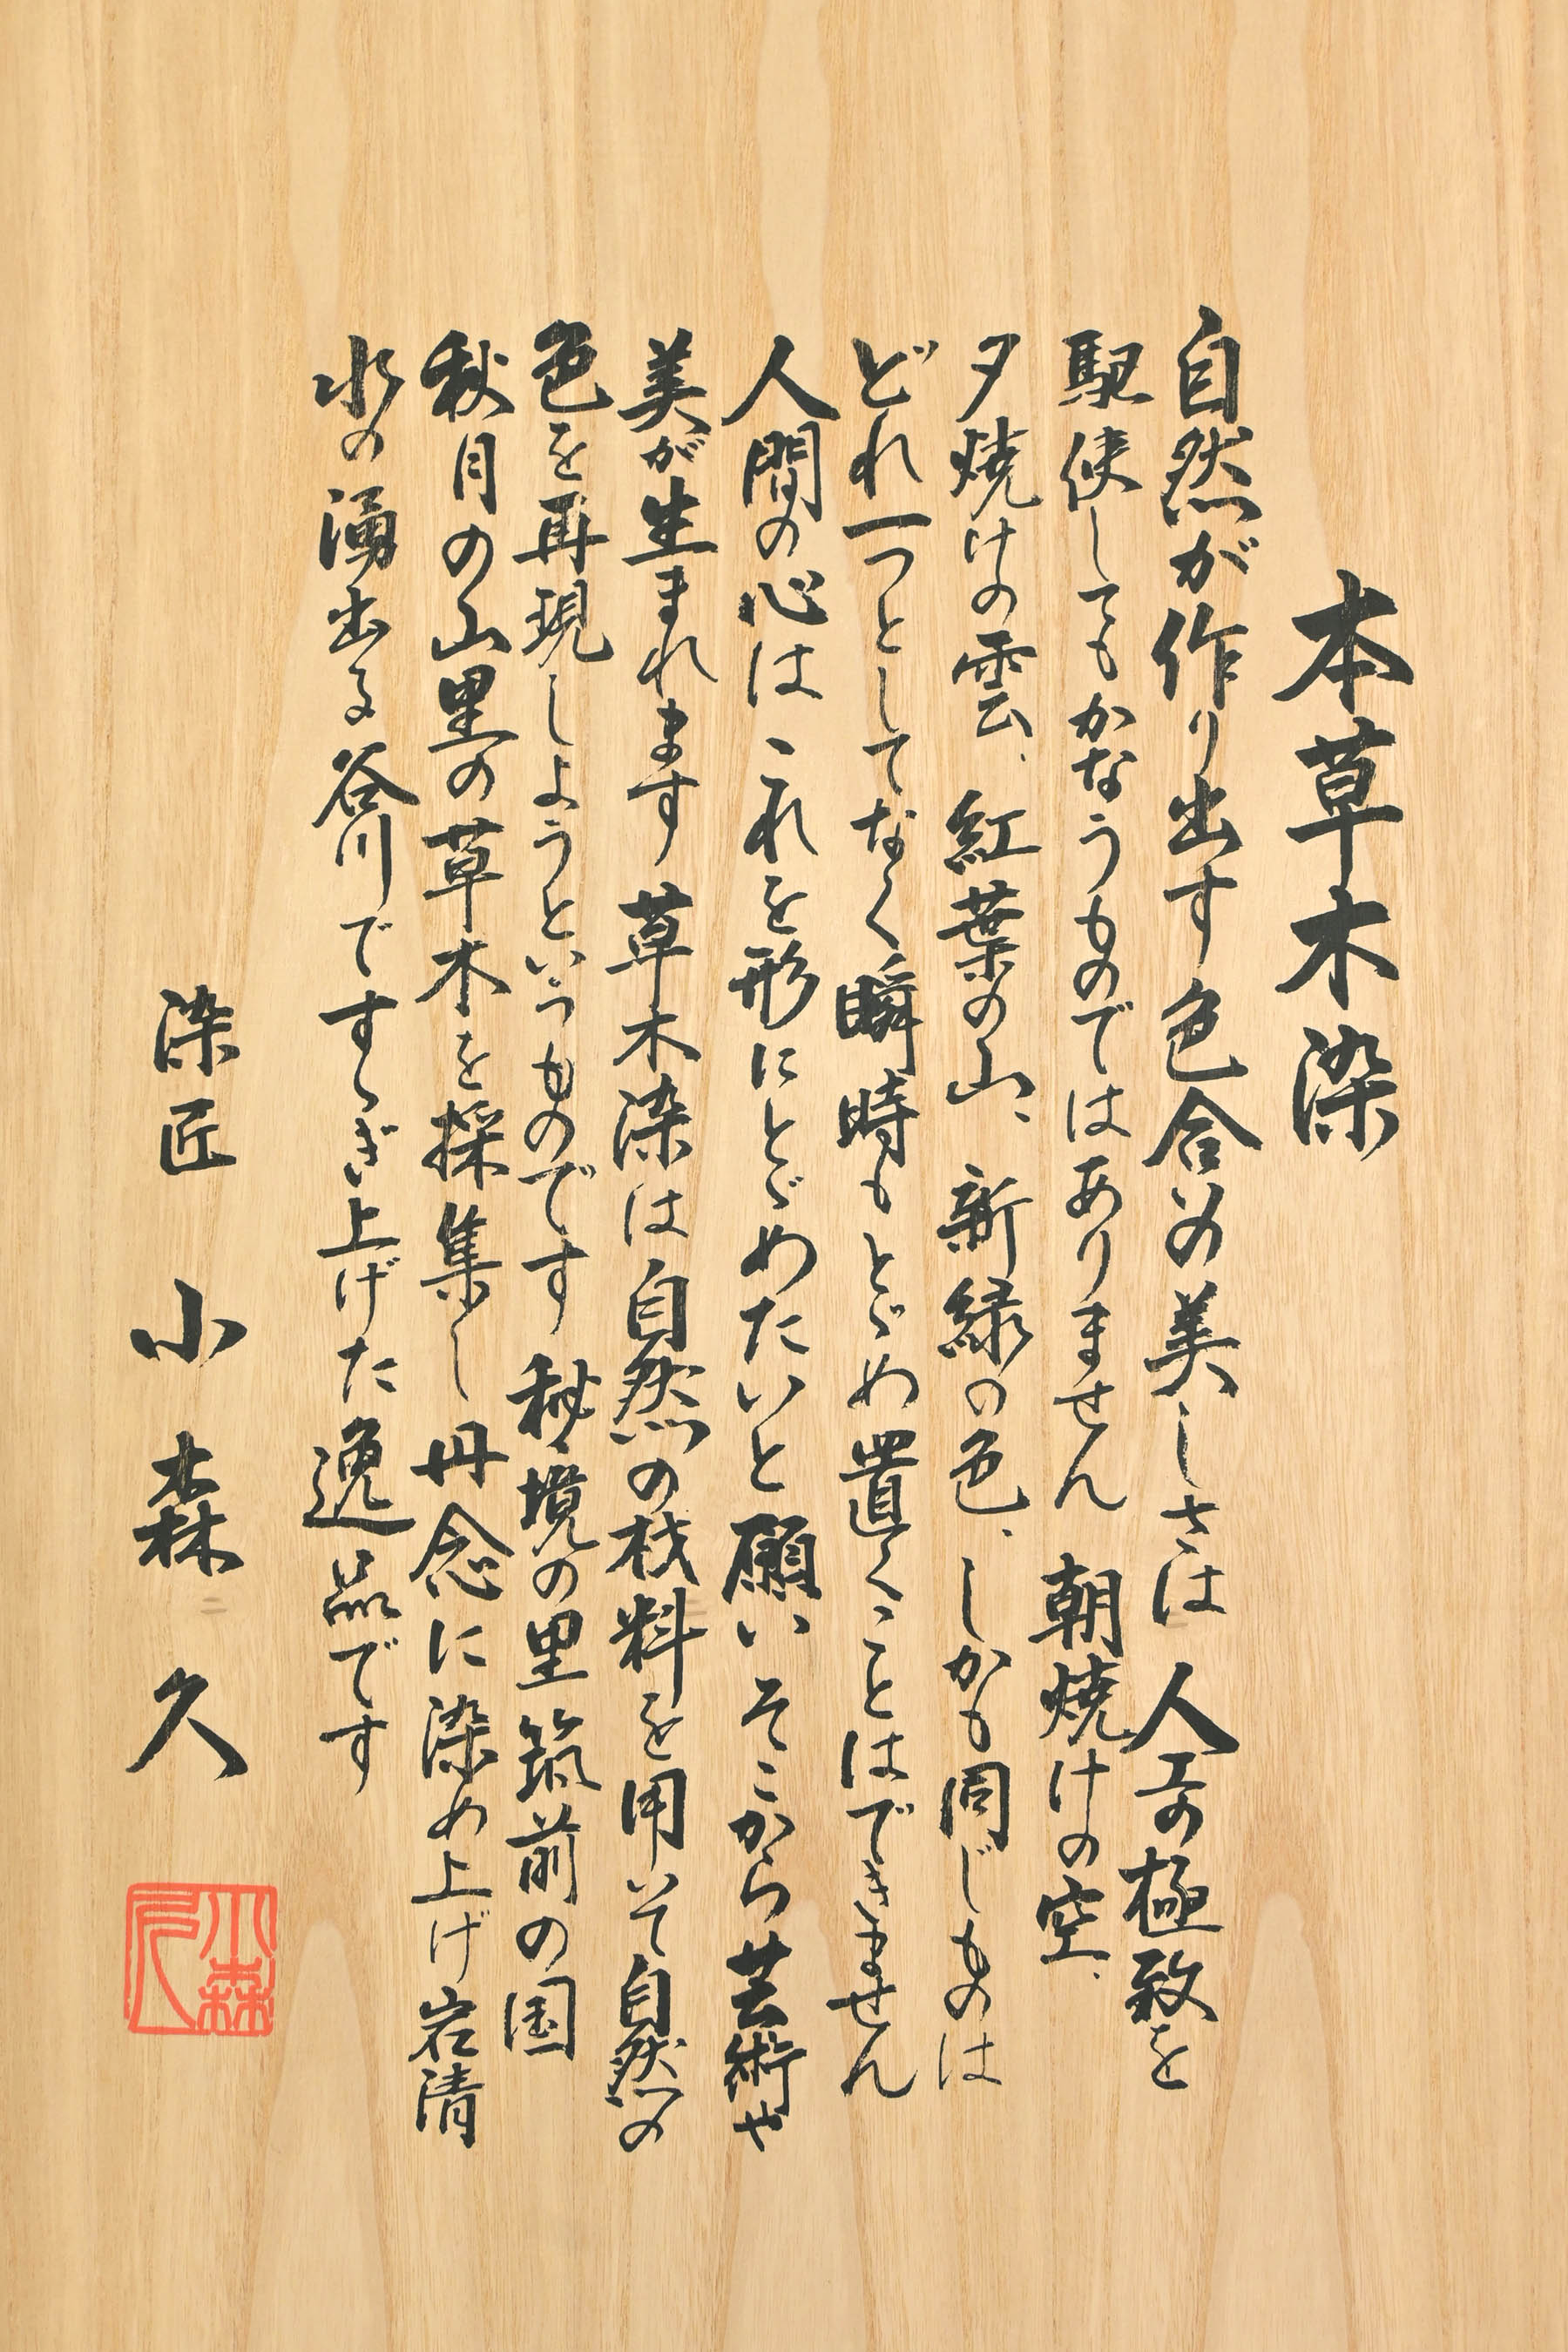 本草木染
自然が作り出す色合の美しさは 人工の極致を
駆使してもかなうものではありません 朝焼けの空、
夕焼けの雲、紅葉の山、新緑の色、しかも同じものは
どれ一つとしてなく瞬時もとゞめ置くことはできません
人間の心はこれを形にとゞめたいと願い そこから芸術や
美が生まれます 草木染は自然の材料を用いて自然の
色を再現しようというものです 秘境の里筑前の国
秋月の山里の草木を採集し丹念に染め上げ岩清
水の湧出る谷川ですゝぎ上げた逸品です
染匠 小森久
小森
久